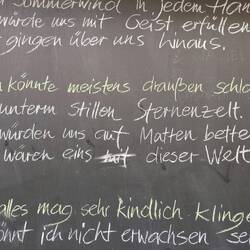 Sommerwind in jedem
würde uns mit Geist erfüllen
gingen über uns hinaus.
könnte meistens draußen
unterm stillen Sternenzelt.
würden uns auf Matten
wären eins mit dieser Welt
alles mag sehr kindlich
ich nicht erwachsen